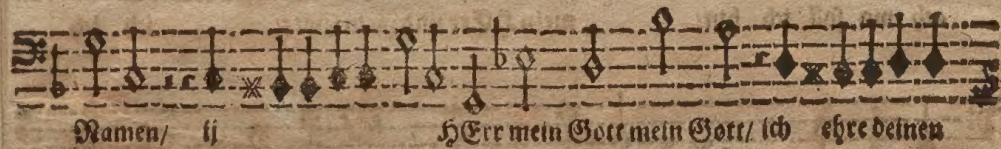 Namen/ ij HErr mein Gott mein Gott/ ich ehre deinen